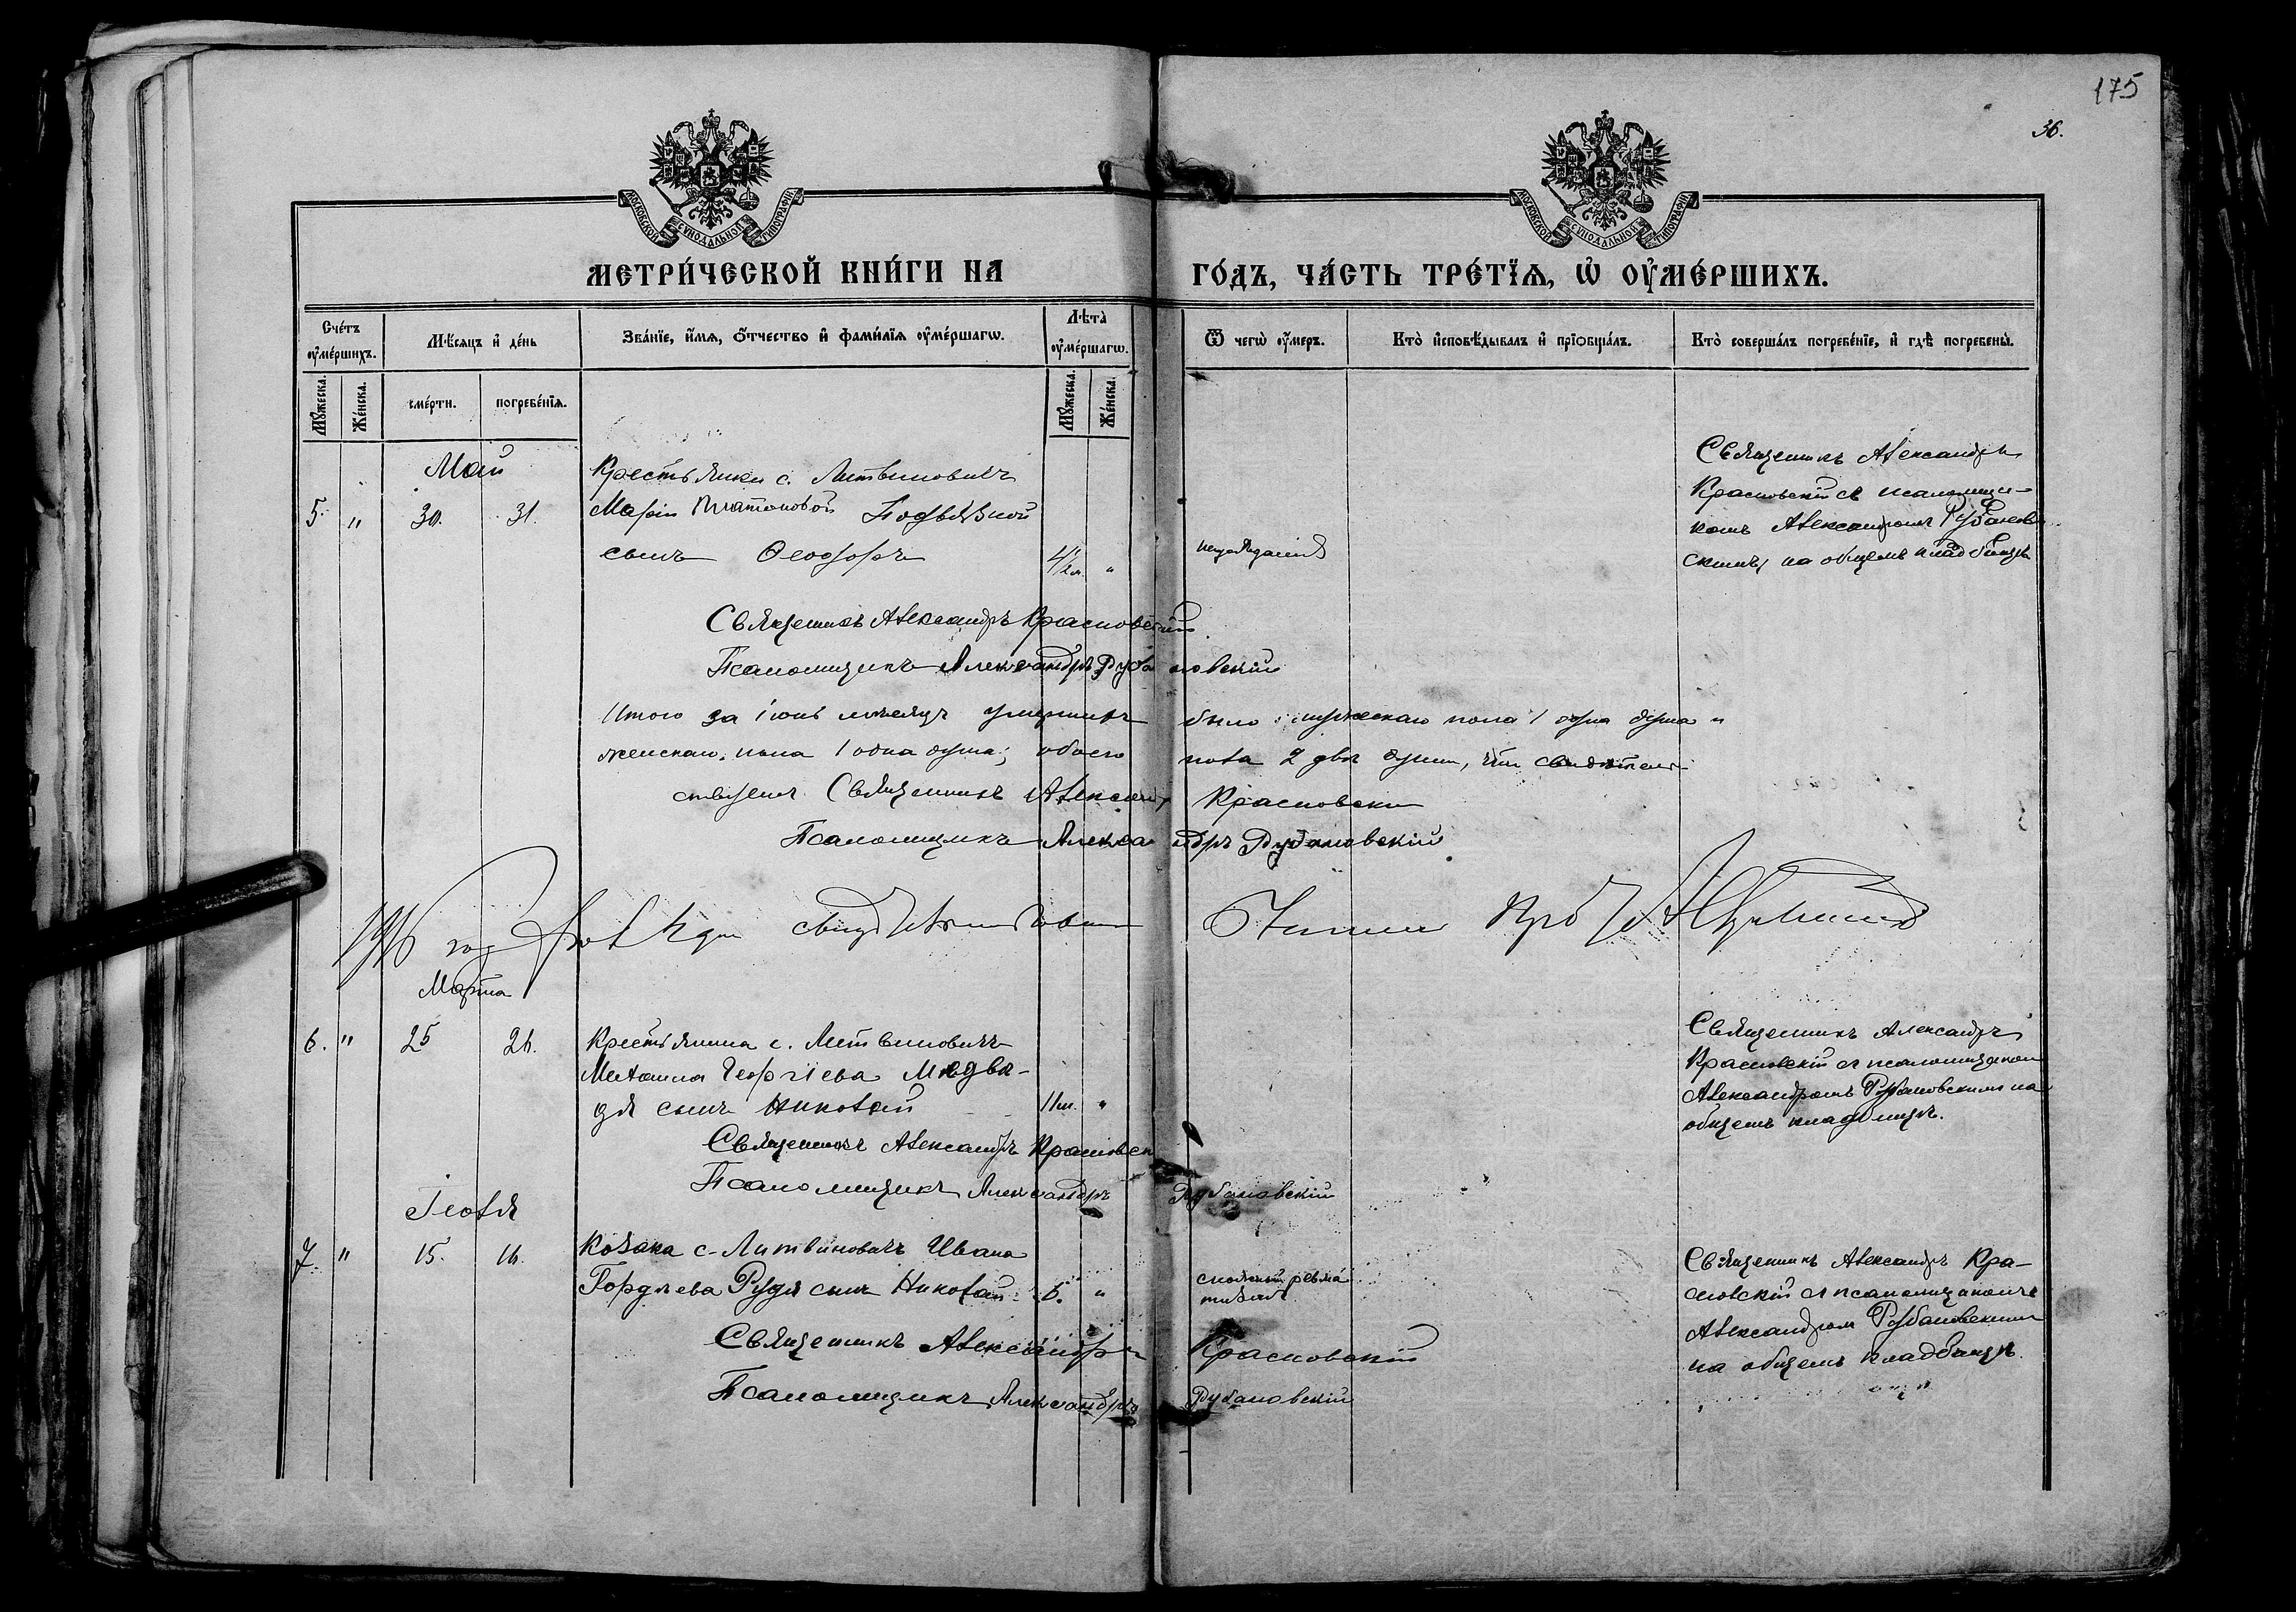 175
36.
МОСКОВСКОЙ СУНОДАЛЬНОЙ ТИПОГРАФІИ
МОСКОВСКОЙ СУНОДАЛЬНОЙ ТИПОГРАФІИ
МЕТРИ́ЧЕСКОЙ КНИ́ГИ НА ГО́ДЪ, ЧА́СТЬ ТРЕ́ТЇѦ, Ѡ҆ ОУ҆МЕ́РШИХЪ.
Сче́тъ оу҆ме́ршихъ.
Мѣ́сяцъ и҆ де́нь
Зва́нїе, и҆́мѧ, ѻ҆́тчество и҆ фами́лїѧ оу҆ме́ршагѡ.
Лѣта̀ оу҆ме́ршагѡ.
Ѿ чегѡ̀ оу҆́меръ.
Кто̀ и҆сповѣ́дывалъ и҆ прїѻбща́лъ.
Кто̀ соверша́лъ погребе́нїе, и҆ гдѣ̀ погребены̀.
Мꙋ́жеска.
Же́нска.
сме́рти.
погребе́нїѧ.
Мꙋ́жеска.
Же́нска.
Май
5. " 30. 31.
Крестьянки с. Литвиновичъ
Маріи Платоновой Подвязной
сынъ Ѳеодоръ
Священникъ Александръ
Красновскій съ псаломщи-
комъ Александромъ Рубанов-
скимъ, на общемъ кладбищѣ
Священникъ Александръ Красновскій
Псаломщикъ Александръ Рубановскій
Итого за іюнь мѣсяцъ умершихъ было мужескаго пола 1 одна душа и
женскаго пола 1 одна душа; обоего пола 2 двѣ души, что свидѣтель-
ствуемъ Священникъ Александръ Красновскій
Псаломщикъ Александръ Рубановскій
1916
Марта
6. " 25 26.
Крестьянина с. Литвиновичъ
Михаила Георгіева Медвѣ-
дя сынъ Николай
11м. "
Священникъ Александръ
Красновскій съ псаломщикомъ
Александромъ Рубановскимъ на
общемъ кладбищѣ.
Священникъ Александръ Красновск
Псаломщикъ Александръ Рубановскій
Іюля
7. " 15. 16.
Козака с. Литвиновичъ Ивана
Гордѣева Рудя сынъ Николай
6. "
Священникъ Александръ Кра-
сновскій съ псаломщикомъ
Александромъ Рубановскимъ
на общемъ кладбищѣ.
Священникъ Александръ Красновскій
Псаломщикъ Александръ Рубановскій